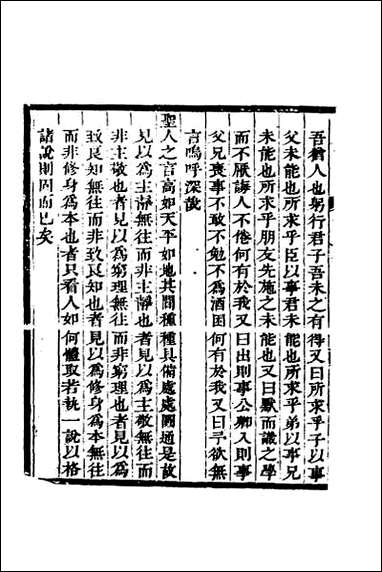 吾猶人也躬行君子吾未之有得又曰所求乎子以事
父未能也所求乎臣以事君未能也所求乎弟以事兄
未能也所求乎朋友先施之未能也又曰默而識之學
而不厭誨人不倦何有於我又曰出則事公卿入則事
父兄喪事不敢不勉不為酒困何有於我又曰予欲無
言嗚呼深哉
聖人之言高如天平如地其間種種具備處處圓通是故
見以為主靜無往而非主靜也者見以為主敬無往而
非主敬也者見以為窮理無往而非窮理也者見以為
致良知無往而非致良知也者見以為修身為本無往
而非修身為本也者只看人如何體取若執一說以格
諸說則固而已矣